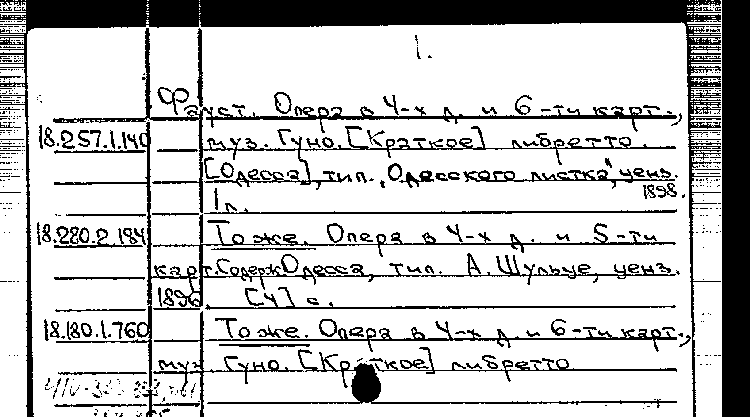 1.
Фауст. Опера в 4-х д. и 6-ти карт.,
18.257.1.140 муз. Гуно. [Краткое] либретто.
[Одесса], тип. „Одесского листка", ценз.
1898.
1 л.
18.280.2.184 То же. Опера в 4-х д. и 5-ти
карт. Содерж. Одесса, тип. А. Шульце, ценз.
1896. [4] с.
18.180.1.760 То же. Опера в 4-х д. и 6-ти карт.,
муз. Гуно. [Краткое] либретто